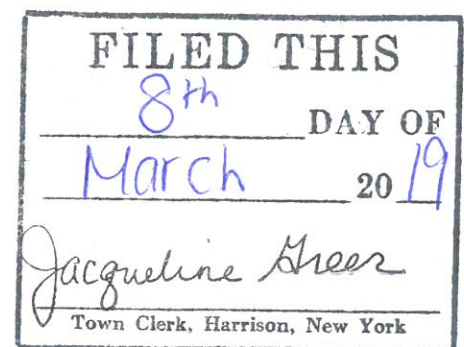 FILED THIS
8th DAY OF
March 2019
Jacqueline Greer
Town Clerk, Harrison, New York